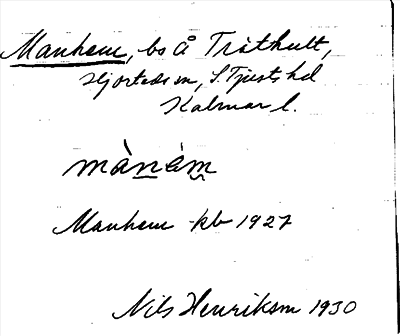 Manhem, bs å Tråthult,
Hjorteds sn, S. Tjusts hd
Kalmar l.
mànám
Manhem kb 1927
Nils Henriksson 1930